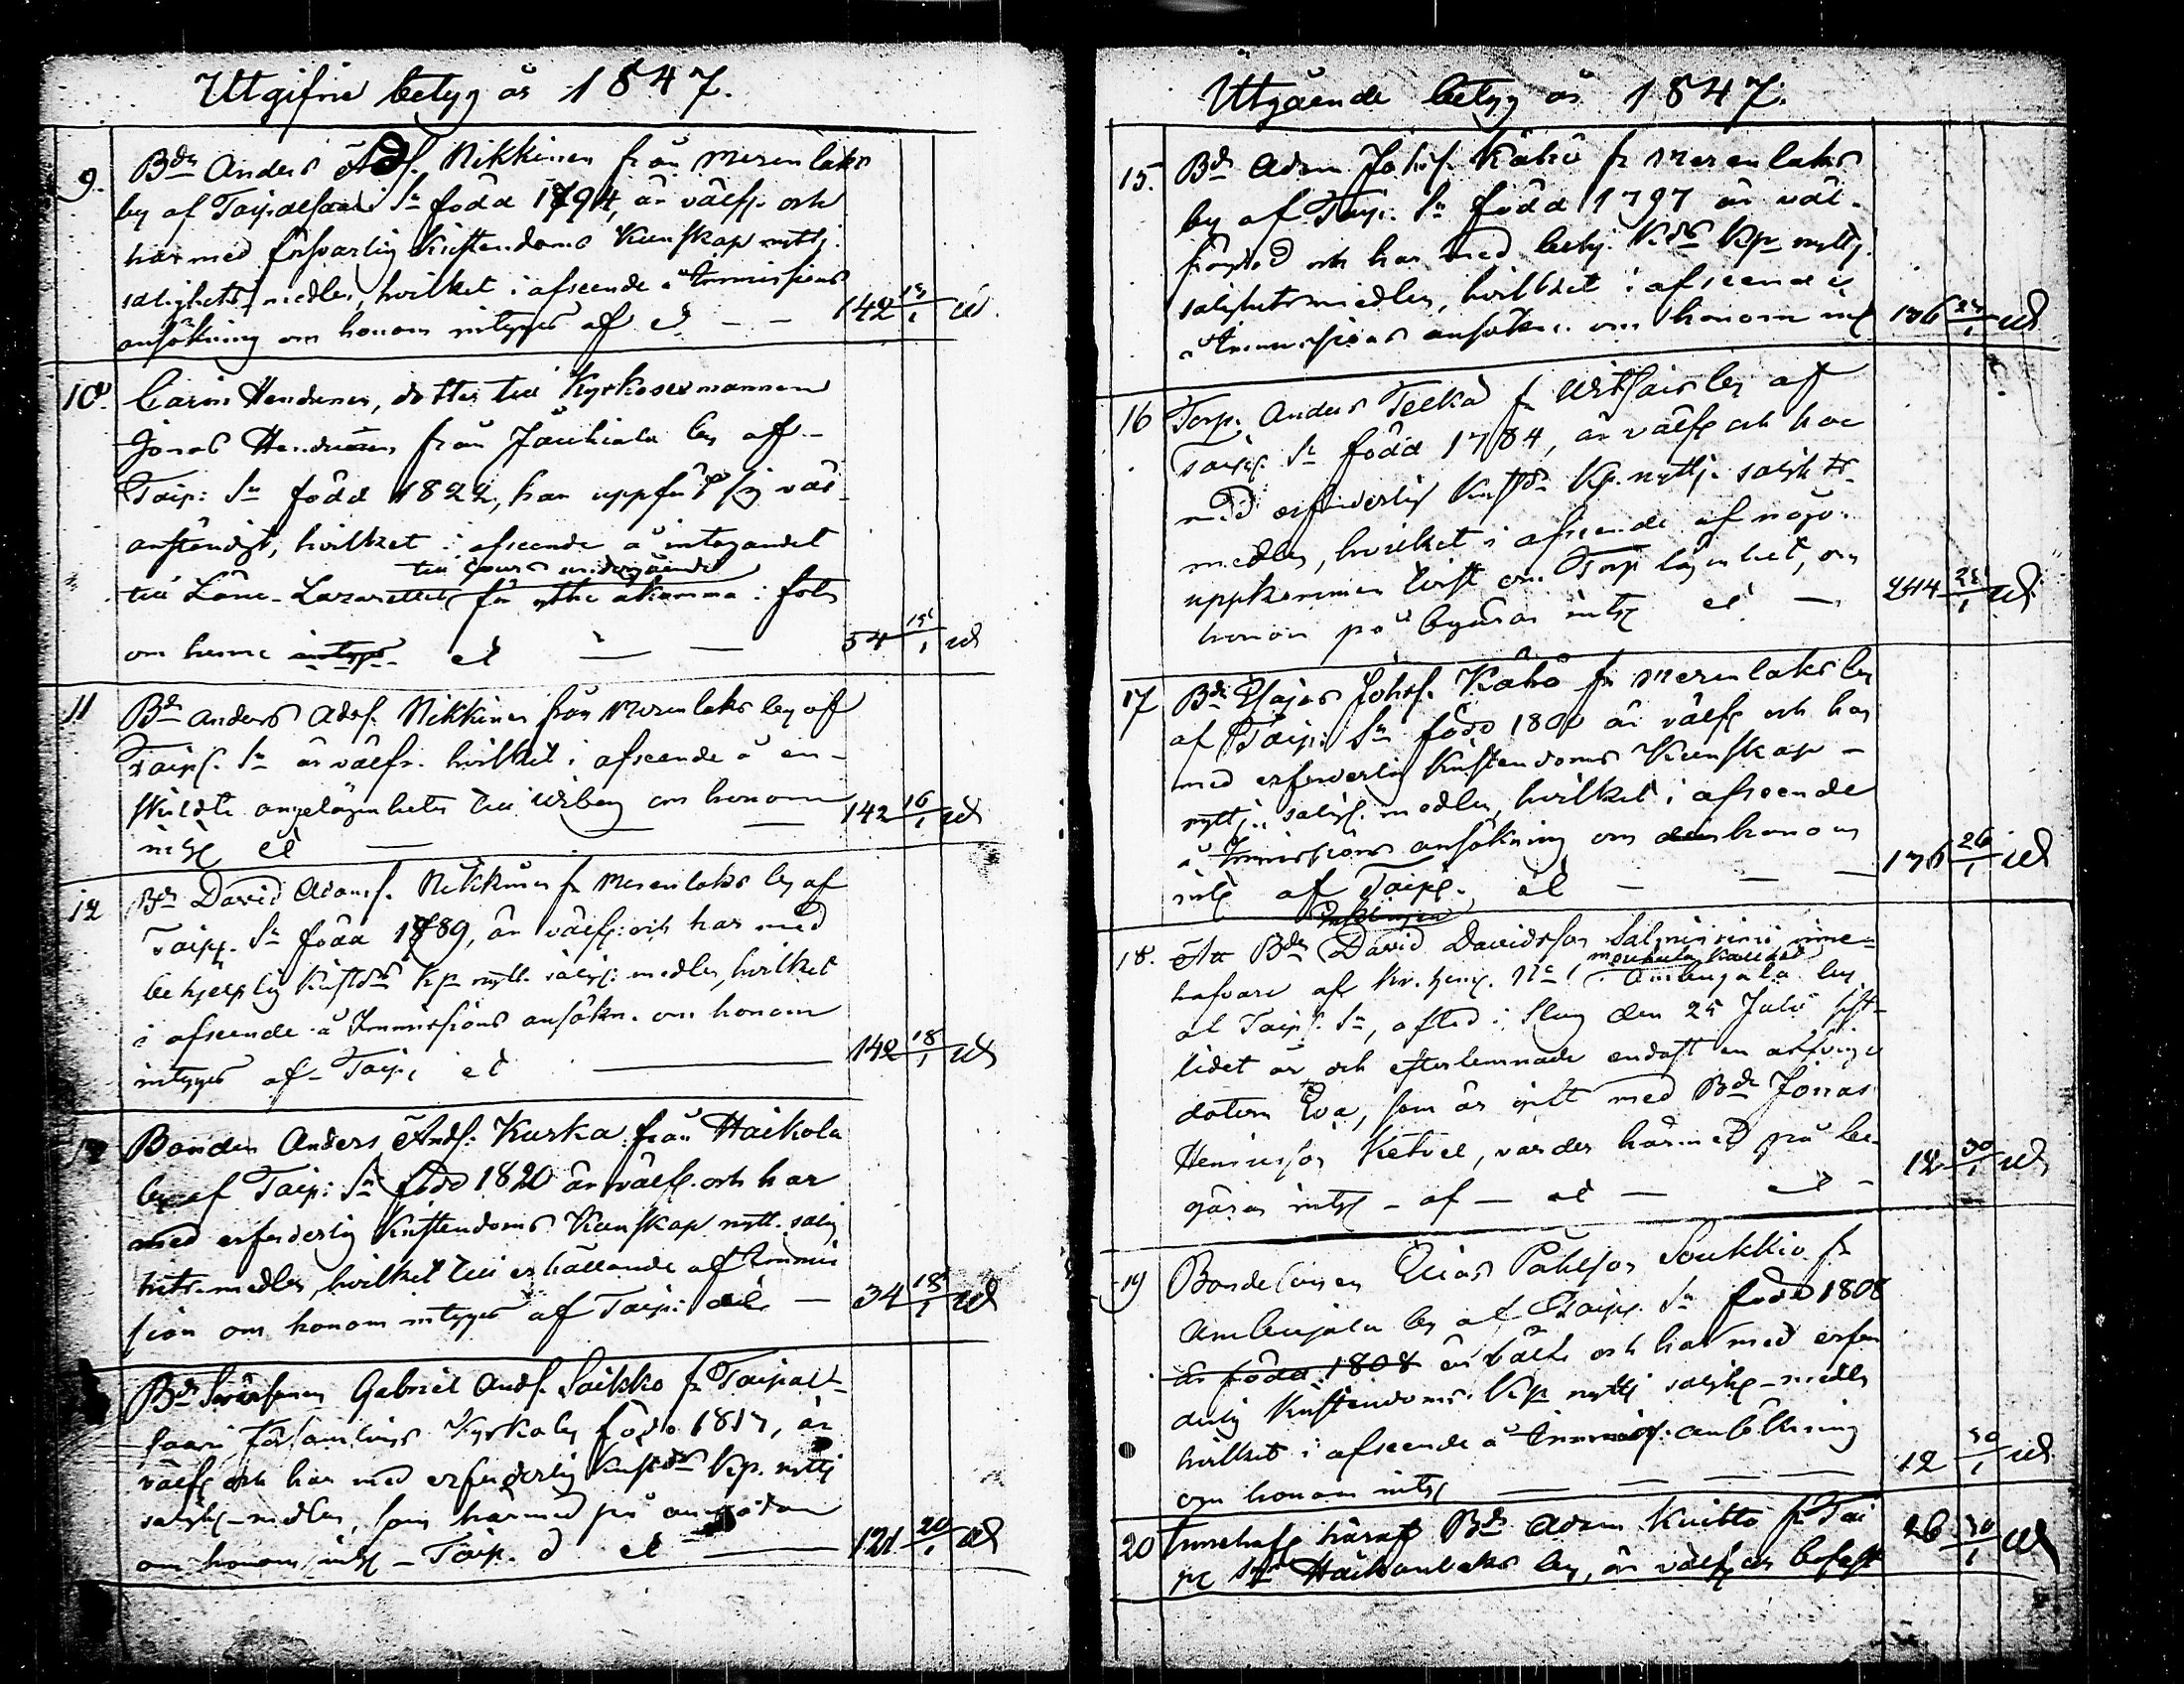 Utgifne betyg år 1847.
9. Bdn Anders Adf. Nikkinen från Merenlaks
by af Taipalsaari Sn född 1794, är välfr. och
har med försvarlig Kristendoms Kunskap nyttj.
salighets medlen, hvilket i afseende å Immissions
ansökning om honom intygas af 142 15/1
10. Carin Hendunen, dotter till Kyrkosexmannen
Jonas Hendunen från Jauhiala by af
Taip: Sn född 1822, har uppfört sig väl
anständigt, hvilket i afseende å intagandet
till curs undergående
till Läne-Lazarettet för yttre åkomma i fot
om henne intygas 54 15/1
11 Bdn Anders Adsf. Nikkinen från Merenlaks by af
Taips. Sn är välfr. hvilket i afseende å en-
skildte angelägenheter till Wiborg om honom
intyg 142 16/1
12 Bdn David Adamsf. Nikkinen fr Merenlaks by af
Taip. Sn född 1789, är välfr. och har med
behjelplig Kristds Kp nytt. salig. medlen, hvilket
i afseende å Immissions ansökn. om honom
intygas af Taip: 142 18/1
Bonden Anders Andf. Kurka från Haikola
by af Taip: Sn född 1820 är välfr. och har
med erforderlig Kristendoms Kunskap nytt. salig
hets-medlen, hvilket till erhållande af Immis
sion om honom intygas af Taip: 34 18/1
Bd Gabriel Andf. Saikko fr Taipal-
saari församlings Kyrkoby född 1817, är
välfr och har med erforderlig Kristds Kp. nyttj
saligh-medlen, som härmed på anmodan
om honom intyg - Taip. 121 20/1
Utgående betyg år 1847.
15. Bdn Adam Johsf. Kähö fr Merenlaks
by af Taip. Sn född 1797 är väl-
frejdad och har med behj. Kds Kp nyttj
salighetsmedlen, hvilket i afseende
å Immissions ansökn. om honom int 136
16 Torp. Anders Telkä fr by af
Taip. Sn född 1784, är välfr och har
med erforderlig Kristds Kp. nyttj. saligh ts
medlen, hvilket i afseende af någo.
uppkommen tvist om Torp lägenhet, om
honom på begäran intyg 244
17 Bdn Esajas Johsf. Kähö fr Merenlaks by
af Taip. Sn född 1800 är välfr och har
med erforderlig Kristendoms Kunskap
nyttj. salig. medlen, hvilket i afseende
å Immissions ansökning om honom
intyg af Taip. 136 26/1
18. Att Bdn David Davidsson Salminen inne-
hafvare af Kr. hem. No 1 Ambugala by
af Taip. Sn, afled i Slag den 25 Juli sist-
lidet år och efterlemnade endast en arfvinge
dotern Eva, som är gift med Bdn Jonas
Henricsson Ketvel, varder härmed på be-
gäran intyg - af 12 30/1
19 Bondesonen Elias Påhlson Soukkio fr
Ambugala by af Taip. Sn född 1808
är född 1808 är välfr och har med erfor
derlig Kristendoms Kp nyttj saligh-medlen
hvilket i afseende å Immiss. ansökning
om honom intyg 12 30/1
20 Innehafv häraf Bdn Adam Kuitto fr Tai
p Sn Haikanlaks by, är välfr, 26 30/1